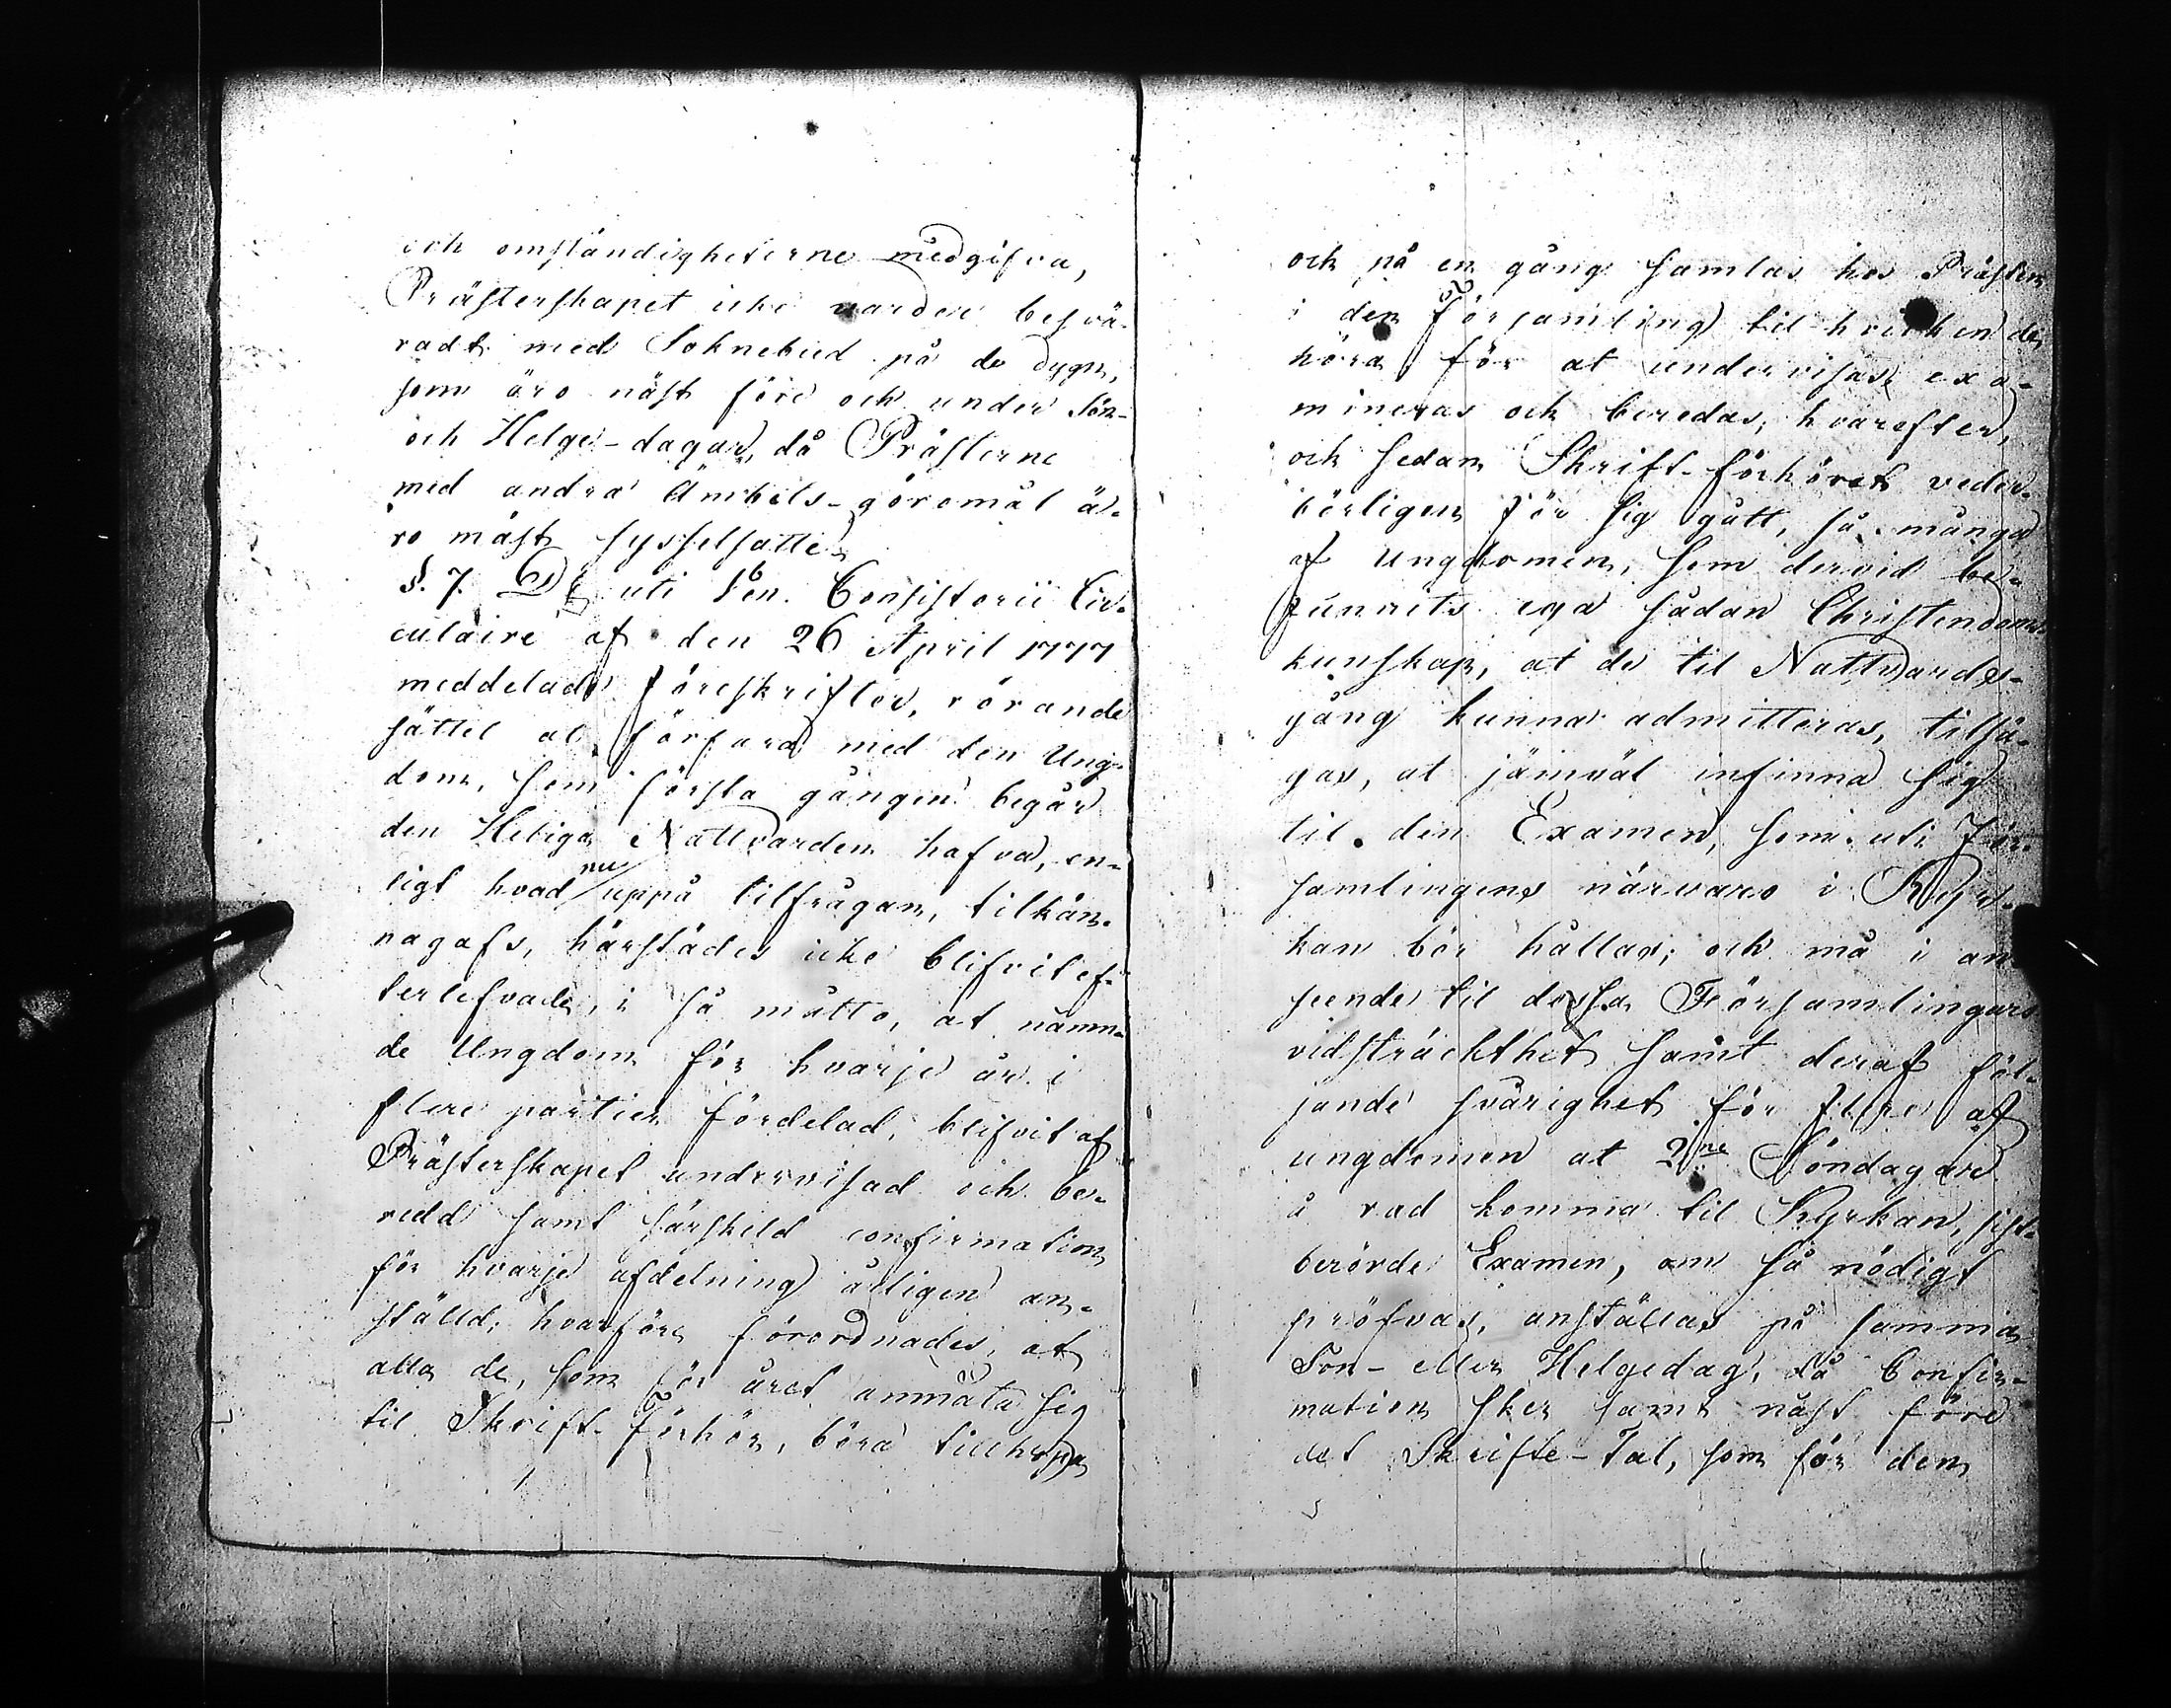 och omständigheterne medgifva,
Prästerskapet icke warder besvä-
radt med Soknebud på de dygn,
som äro näst före och under Sön-
och Helge-dagar, då Prästerne
med andra Ämbets-göromål ä-
ro mäst sysselsatte.
§. 7. De uti Ven. Consistorii Cir-
culaire af den 26 April 1777
meddelade föreskrifter, rörande
sättet at förfara med den Ung-
dom, som första gången begår
den Heliga Nattvarden hafva, en-
ligt hvad nu uppå tilfrågan, tilkän-
nagafs, härstädes icke blifvit ef-
terlefvade, i så måtto, at nämn-
de Ungdom för hvarje år i
flere partier fördelad, blifvit af
Prästerskapet undervisad och be-
redd samt särskild confirmation
för hvarje afdelning årligen an-
ställd; hvarföre förordnades, at
alla de, som för året anmäla sig
til Skrift-förhör, böra tillhopa
och på en gång samlas hos Prästen
i den församling til hvilken de
höra för at undervisas, exa-
mineras och beredas; hvarefter,
och sedan Skrift-förhöret veder-
börligen för sig gått, så många
af Ungdomen, som dervid be-
funnits ega sådan Christendoms
kunskap, at de til Nattvards-
gång kunna admitteras, tilsä-
gas, at jämväl infinna sig
til den Examen, som uti För-
samlingens närvaro i Kyr-
kan bör hållas; och må i an-
seende til dessa Församlingars
vidsträckthet samt deraf föl-
jande svårighet för flere af
ungdomen at 2ne Söndagar
å rad komma til Kyrkan, sist-
berörde Examen, om så nödigt
pröfvas, anställas på samma
Sön- eller Helgedag, då Confir-
mation sker samt näst före
det Skrifte-Tal, som för den